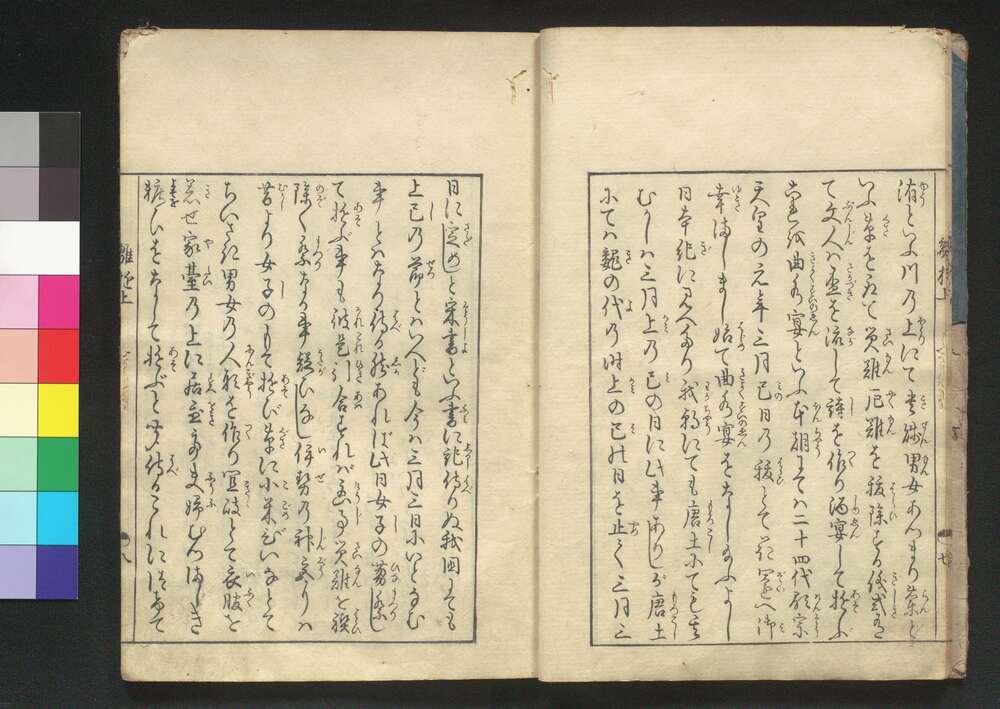 洧といふ川の上にて貴賤男女あつまり蘭と
いふ草を取て災難厄難を祓除する儀式有
て文人は盃を流して詩を作り酒宴して遊ぶ
曲水宴といふ本朝にては二十四代顕宗
天皇の元年三月巳日の祓とて花園へ御
幸まします始て曲水宴をなし給ふよし
日本紀に見へたり我朝にても唐土にても
むかしは三月上の巳の日に此事ありしが唐土
にては魏の代の時上の巳の日を止て三月三
日に定めしと宋書といふ書に記侍りぬ我国とても
上巳の節とはいへども今は三月三日にいとなむ
事とはなり侍る然あれば此日女子の雛祭し
て遊ぶ事も彼是引合すれば災難を禊
除く祭なる事疑ひなし伊勢の神宮には
昔より女子のもて遊び草に小米びいなとて
ちいさき男女の人形を作り宜敷とて衣服を
きせ家台の上に居置夫婦むつましき
粧ひをなして遊ぶと見へ侍るこれによそへて
雛遊上
八
七